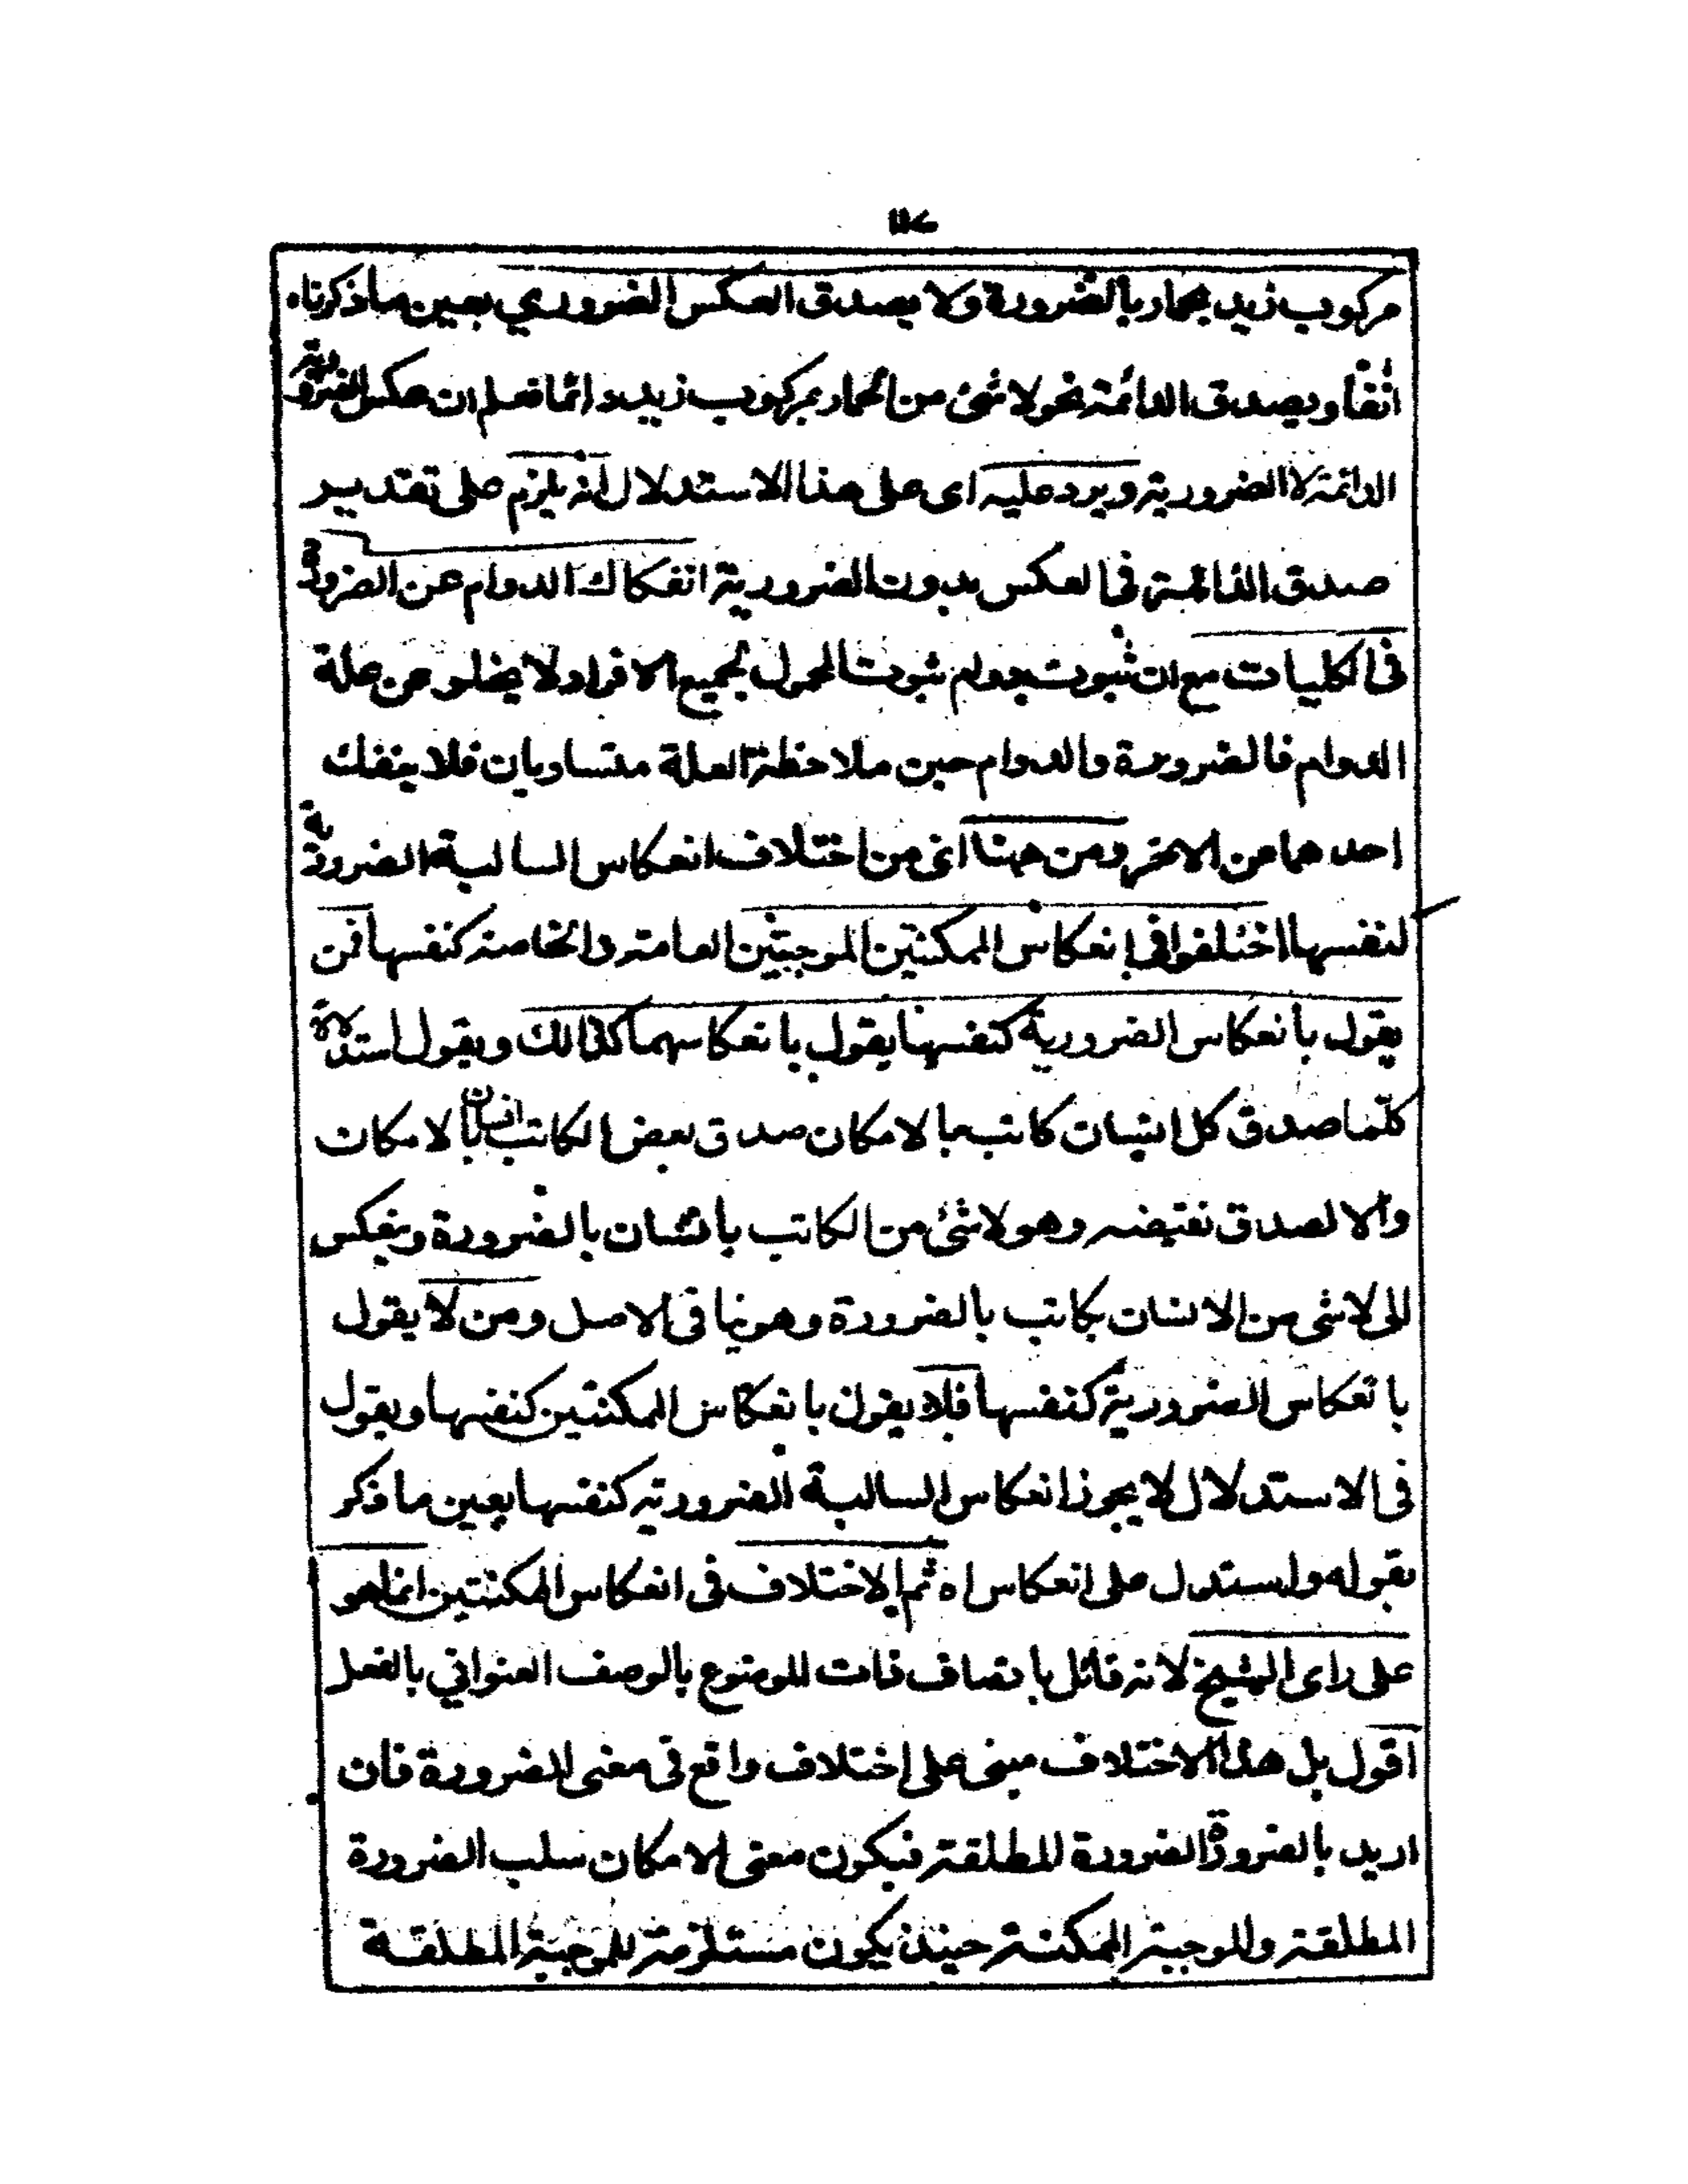 ١١٤
مركوب زيد بحمار بالضرورة ولا يصدق العكس الضروري بعين ما ذكرناه
انفا ويصدق الدائمة نحو لا شئ من الحمار بمركوب زيد دائما فعلم ان عكس الضرورية
الدائمة لا الضرورية ويرد عليه اى على هذا الاستدلال انه يلزم على تقدير
صدق الدائمة فى العكس بدون الضرورية انفكاك الدوام عن الضرورة
فى الكليات مع ان ثبوت بدوام ثبوت المحمول لجميع الافراد لا يخلو عن علة
الدوام فالضرورة والدوام حين ملاحظة العلة متساويان فلا ينفك
احدهما عن الاخر ومن ههنا اى من اختلاف انعكاس السالبة الضرورية
لنفسها اختلفوا فى انعكاس الممكنتين الموجبتين العامة والخاصة كنفسها فمن
يقول بانعكاس الضرورية كنفسها يقول بانعكاسهما كذالك ويقول استدلالا
كلما صدق كل انسان كاتب بالامكان صدق بعض الكاتب انسان بالامكان
والا لصدق نقيضه وهو لا شئ من الكاتب بانسان بالضرورة وينعكس
الى لا شى من الانسان بكاتب بالضرورة وهو ينافى الاصل ومن لا يقول
بانعكاس الضرورية كنفسها فلا يقول بانعكاس الممكنتين كنفسها ويقول
فى الاستدلال لا يجوز انعكاس السالبة الضرورية كنفسها بعين ما ذكر
بقوله واستدل على انعكاس اه ثم الاختلاف فى انعكاس الممكنتين انما هو
على راى الشيخ لانه قائل باتصاف ذات الموضوع بالوصف العنواني بالفعل
اقول بل هذا الاختلاف مبنى على اختلاف واقع فى معنى الضرورة فان
اريد بالضرورة الضرورة المطلقة فيكون معنى الامكان سلب الضرورة
المطلقة والموجبة الممكنة حينئذ يكون مستلزمة للموجبة المطلقة